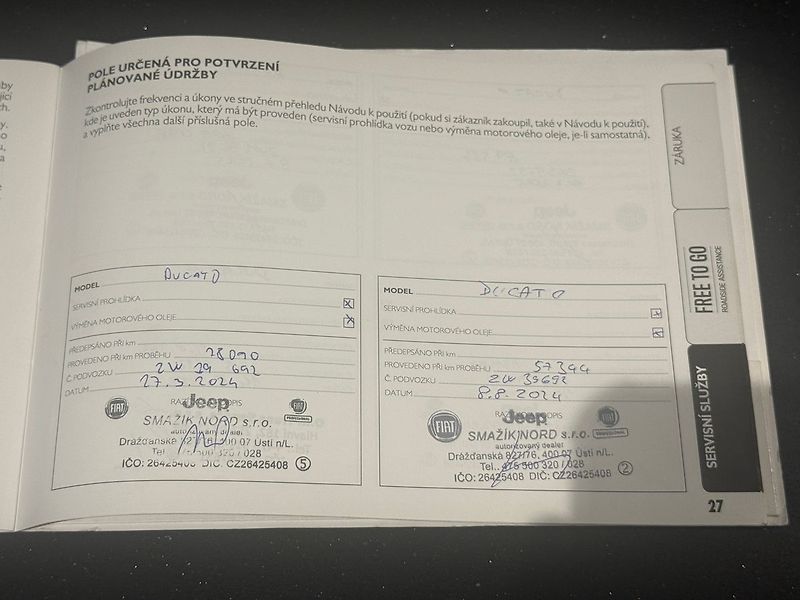 POLE URČENÁ PRO POTVRZENÍ
PLÁNOVANÉ ÚDRŽBY
Zkontrolujte frekvenci a úkony ve stručném přehledu Návodu k použití (pokud si zákazník zakoupil, také v Návodu k použití),
kde je uveden typ úkonu, který má být proveden (servisní prohlídka vozu nebo výměna motorového oleje, je-li samostatná),
a vyplňte všechna další příslušná pole.
MODEL DUCATO
SERVISNÍ PROHLÍDKA X
VÝMĚNA MOTOROVÉHO OLEJE X
PŘEDEPSÁNO PŘI km
PROVEDENO PŘI km PROBĚHU 28090
Č. PODVOZKU 2W 39 692
DATUM 27.3.2024
FIAT Jeep FIAT PROFESSIONAL
SMAŽÍK NORD s.r.o.
autorizovaný dealer
Drážďanská 827/76, 400 07 Ústí n/L.
Tel. 475 500 320 / 028
IČO: 26425408 DIČ: CZ26425408 5
MODEL DUCATO
SERVISNÍ PROHLÍDKA X
VÝMĚNA MOTOROVÉHO OLEJE X
PŘEDEPSÁNO PŘI km
PROVEDENO PŘI km PROBĚHU 57344
Č. PODVOZKU 2W 39692
DATUM 8.8.2024
FIAT Jeep FIAT PROFESSIONAL
SMAŽÍK NORD s.r.o.
autorizovaný dealer
Drážďanská 827/76, 400 07 Ústí n/L.
Tel.: 475 500 320 / 028
IČO: 26425408 DIČ: CZ26425408 2
ZÁRUKA
FREE TO GO
ROADSIDE ASSISTANCE
SERVISNÍ SLUŽBY
27